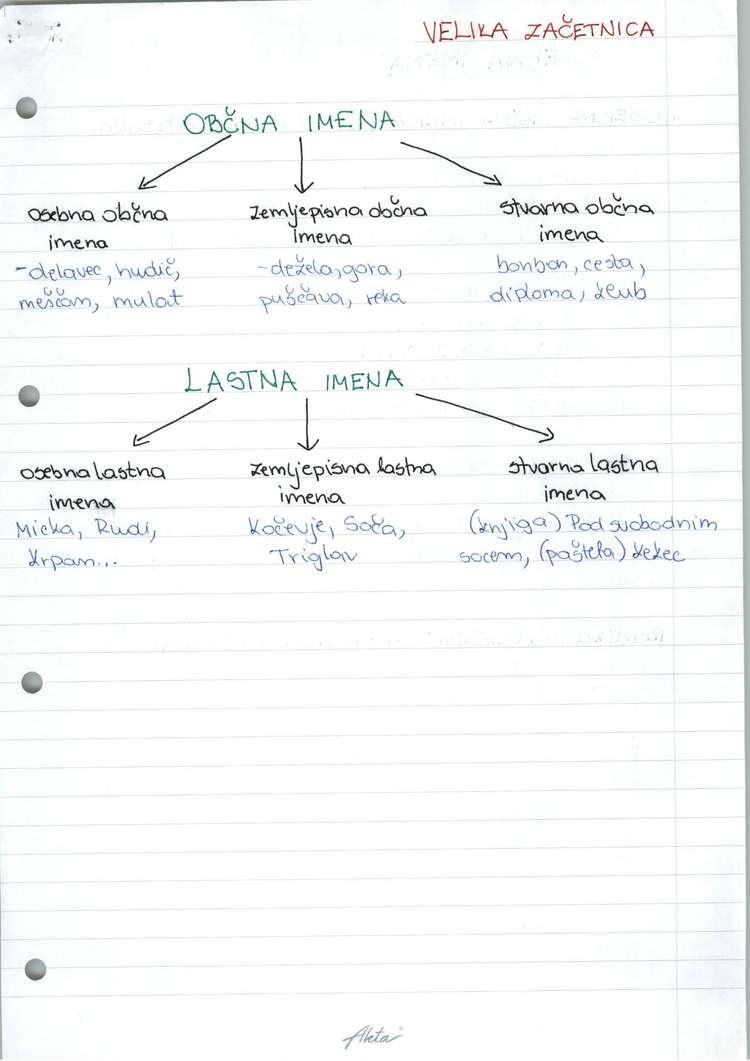 VELIKA ZAČETNICA
OBČNA IMENA
osebna občna
imena
-delavec, hudič,
meščan, mulat
zemljepisna občna
imena
-dežela, gora,
puščava, reka
stvarna občna
imena
bonbon, cesta,
diploma, klub
LASTNA IMENA
osebna lastna
imena
Micka, Rudi,
Krpan...
zemljepisna lastna
imena
Kočevje, Soča,
Triglav
stvarna lastna
imena
(knjiga) Pod svobodnim
socem, (pašteta) Kekec
Akta